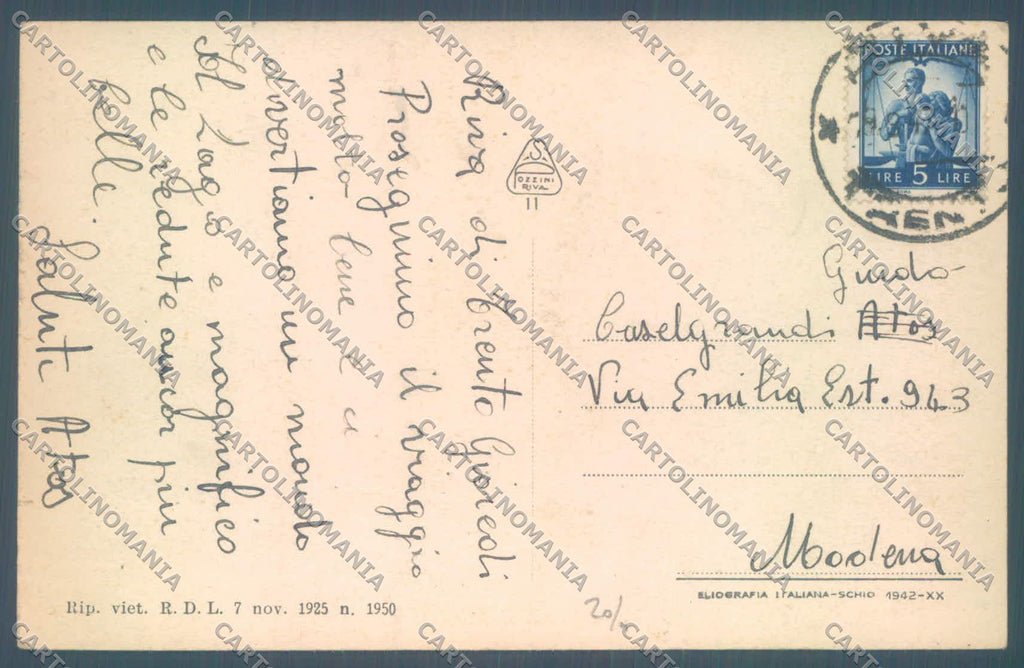 Riva di Trento Giovedì
Proseguiamo il viaggio
molto bene e ci
divertiamo un mondo
Il Lago è magnifico
e le vedute ancor più
belle. Saluti Atos
OZZINI
RIVA
11
POSTE ITALIANE
LIRE 5 LIRE
Guido
Caselgrandi Atos
Via Emilia Est. 943
Modena
ELIOGRAFIA ITALIANA-SCHIO 1942-XX
Rip. viet. R. D. L. 7 nov. 1925 n. 1950
20/-
CARTOLINOMANIA